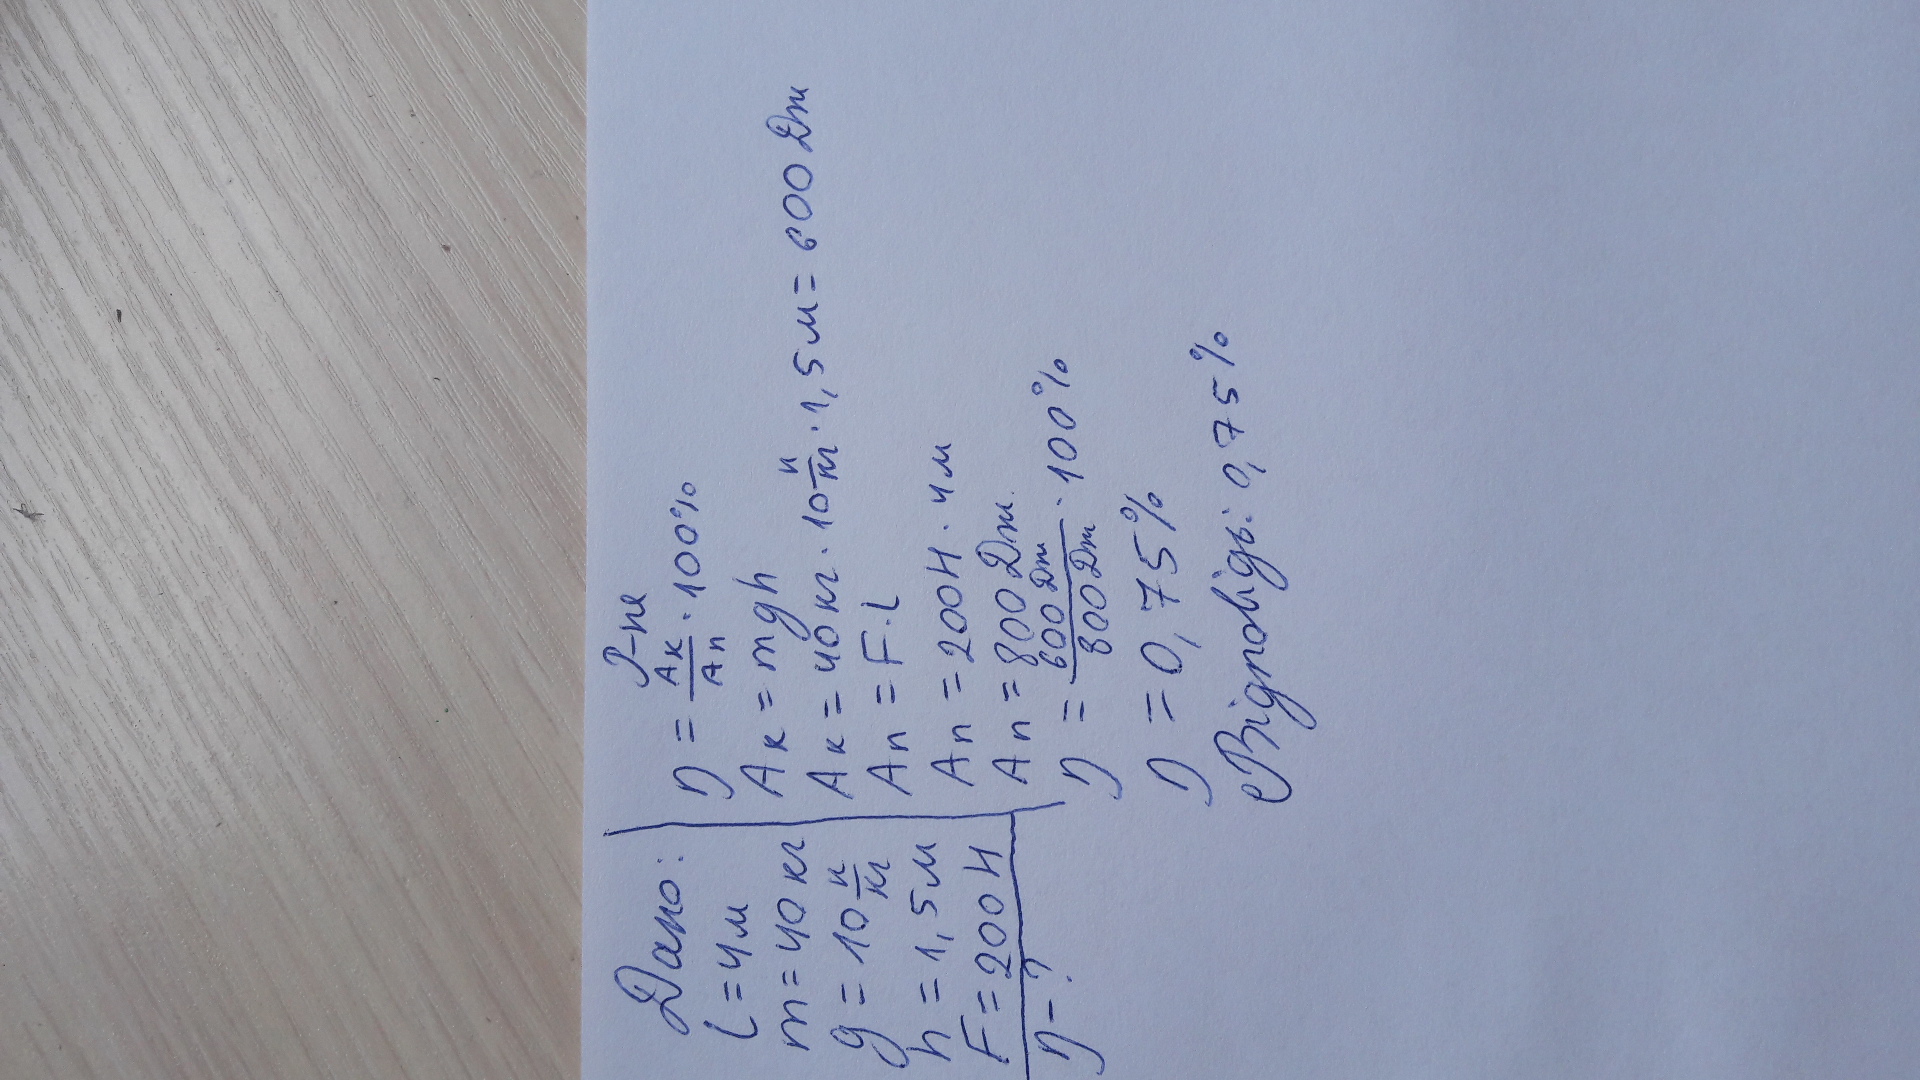 Дано:
l = 4м
m = 40 кг
g = 10 н/кг
h = 1,5 м
F = 200 Н
η - ?
Р-ня
η = Aк/Aп · 100%
Aк = mgh
Aк = 40 кг · 10 н/кг · 1,5 м = 600 Дж
Aп = F · l
Aп = 200 Н · 4 м
Aп = 800 Дж
η = 600 Дж/800 Дж · 100%
η = 0,75%
Відповідь: 0,75%